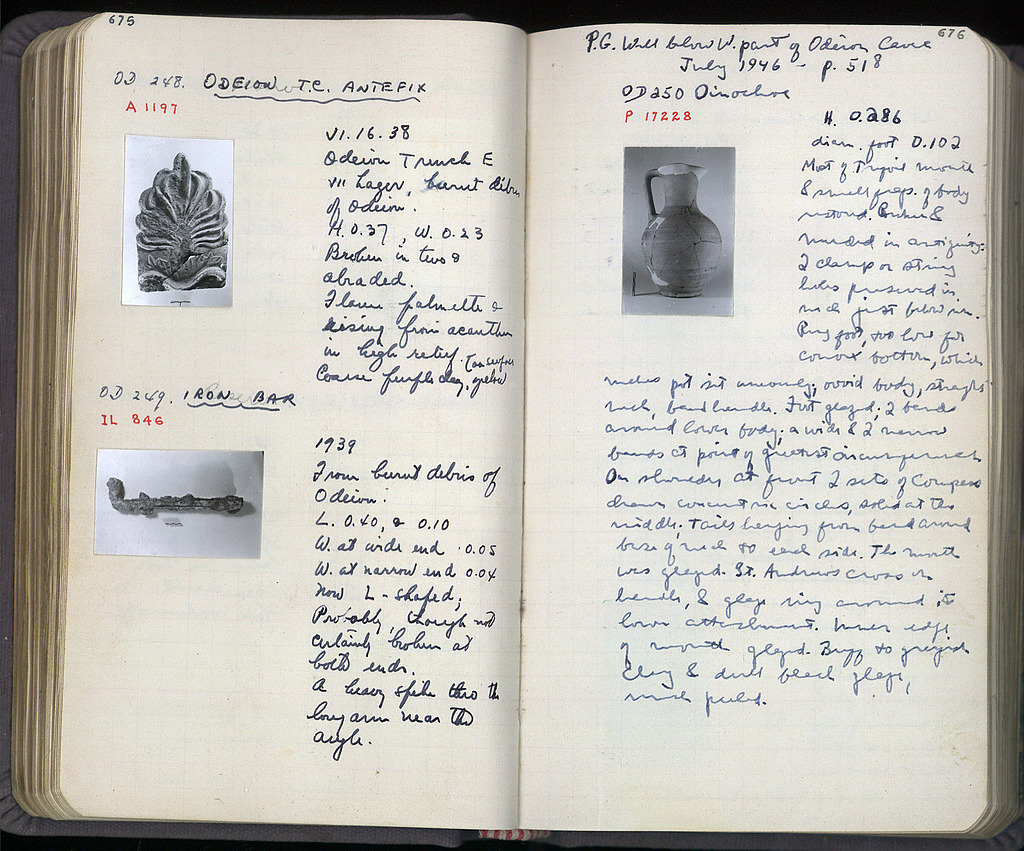 675
OD 248. ODEION T.C. ANTEFIX
A 1197
VI. 16. 38
Odeion Trench E
VII Layer, burnt debris
of Odeion.
H. 0.37, W. 0.23
Broken in two &
abraded.
Flame palmette
rising from acanthus
in high relief.
Coarse purple clay,
OD 249. IRON BAR
IL 846
1939
From burnt debris of
Odeion.
L. 0.40, & 0.10
W. at wide end 0.05
W. at narrow end 0.04
now L-shaped;
Probably, though not
certainly broken at
both ends.
A heavy spike thro the
long arm near the
angle.
676
P.G. Well below W. part of Odeion Cavea
July 1946 - p. 518
OD 250 Oinochoe
P 17228
H. 0.286
diam. foot 0.102
Most of Trefoil mouth
& small frags. of body
restored. Broken &
mended in antiquity:
2 clamp or string
holes preserved in
neck just below rim.
Ring foot, too low for
convex bottom, which
makes pot sit unevenly; ovoid body, straight
neck, band handle. Foot glazed; 2 bands
around lower body; a wide & 2 narrow
bands at point of greatest circumference.
On shoulder at front 2 sets of compass
drawn concentric circles, solid at the
middle; tails hanging from band around
base of neck to each side. The mouth
was glazed. St. Andrew's cross on
handle, & glaze ring around its
lower attachment. Inner edge
of mouth glazed. Buff to greyish
clay & dull black glaze,
much peeled.